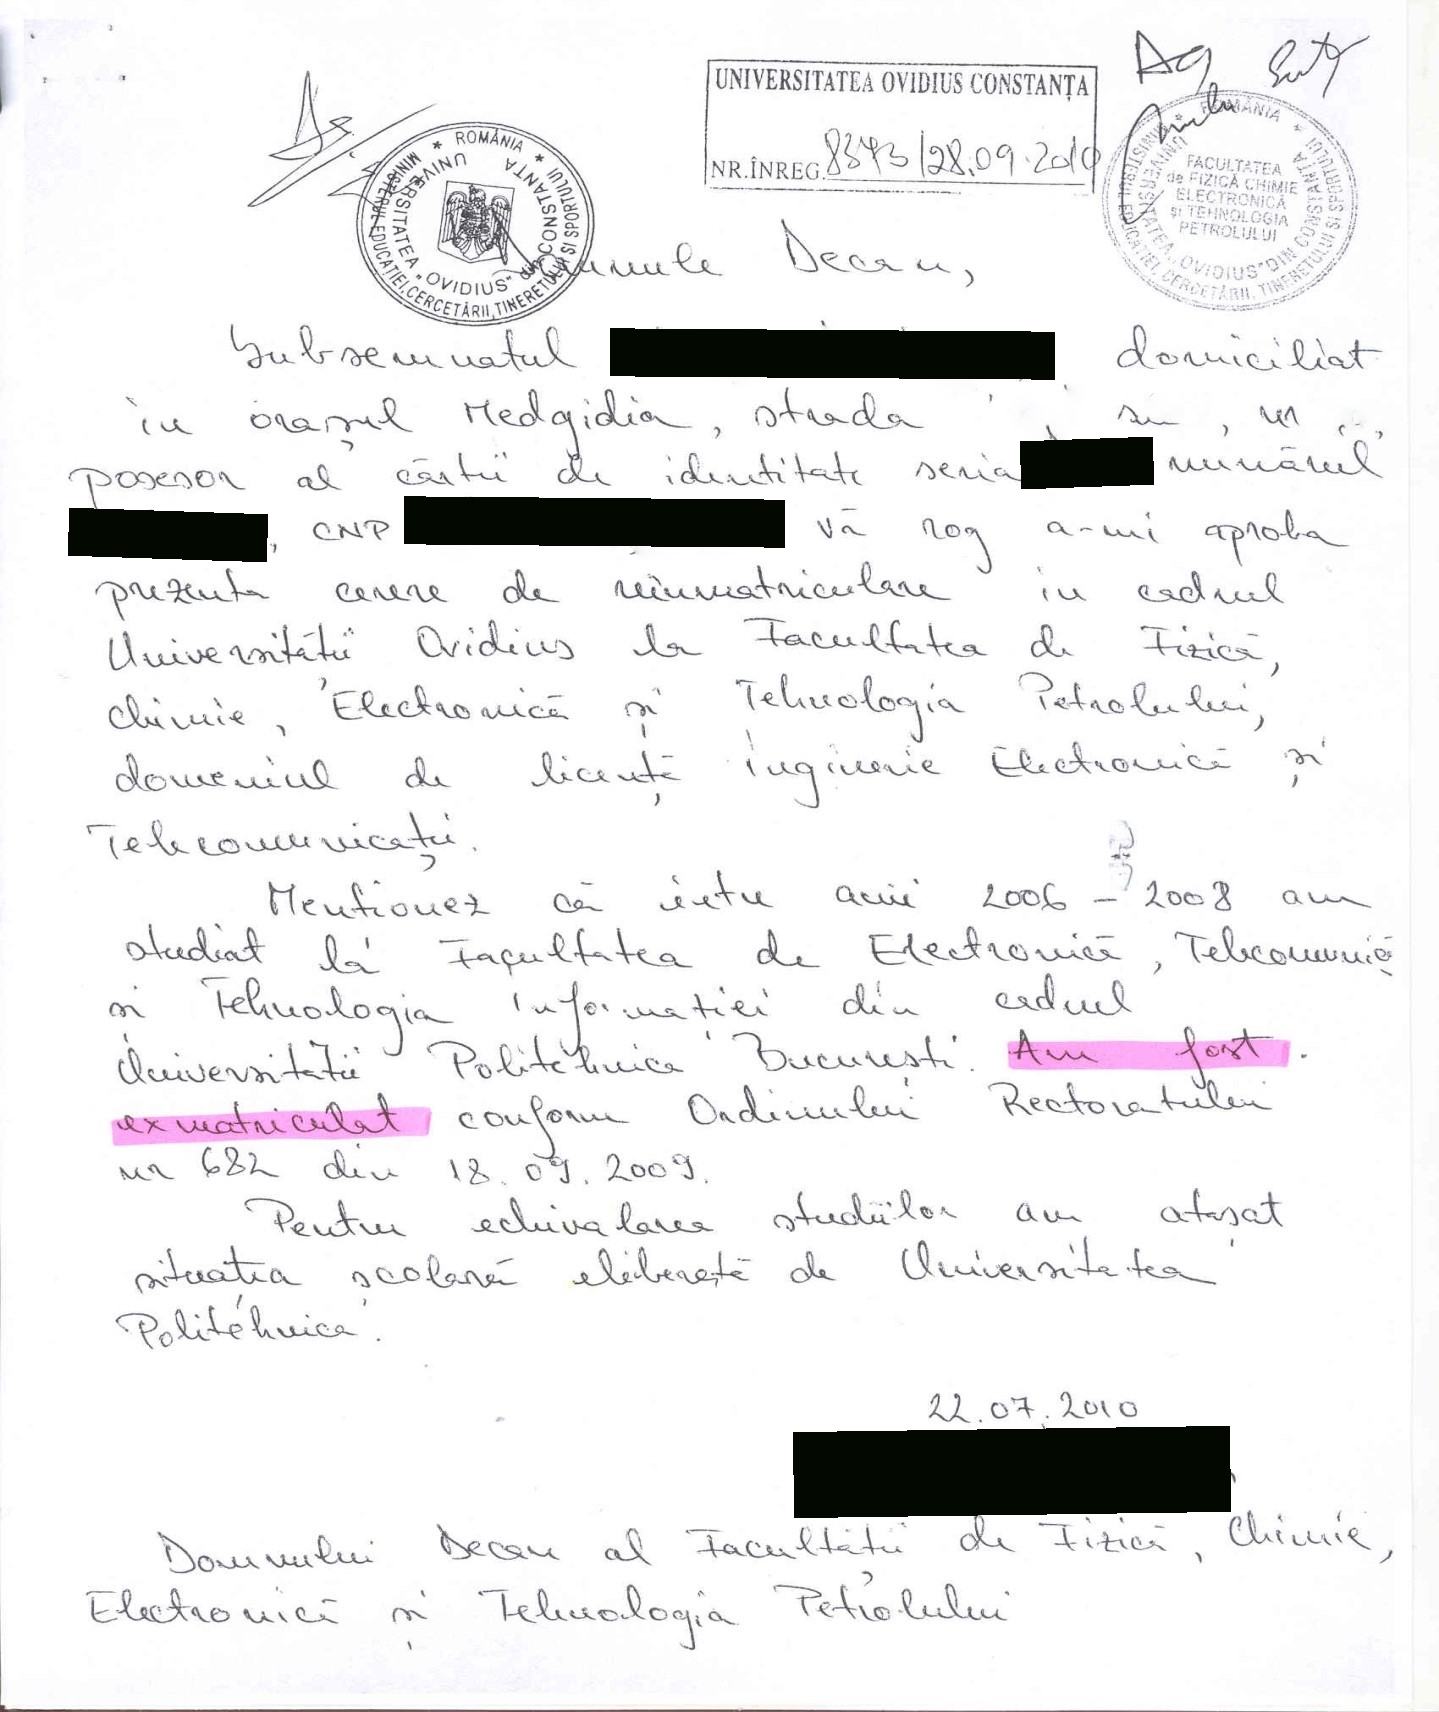 UNIVERSITATEA OVIDIUS CONSTANȚA
NR.ÎNREG. 8373/28.09.2010
ROMÂNIA
MINISTERUL EDUCAȚIEI, CERCETĂRII, TINERETULUI ȘI SPORTULUI
UNIVERSITATEA "OVIDIUS" din CONSTANȚA
ROMÂNIA
MINISTERUL EDUCAȚIEI, CERCETĂRII, TINERETULUI ȘI SPORTULUI
UNIVERSITATEA "OVIDIUS" DIN CONSTANȚA
FACULTATEA
de FIZICĂ CHIMIE
ELECTRONICĂ
și TEHNOLOGIA
PETROLULUI
Domnule Decan,
Subsemnatul domiciliat
în orașul Medgidia, strada , nr
posesor al cărții de identitate seria numărul
, CNP vă rog a-mi aproba
prezenta cerere de reînmatriculare în cadrul
Universității Ovidius la Facultatea de Fizică,
Chimie, Electronică și Tehnologia Petrolului,
domeniul de licență Inginerie Electronică și
Telecomunicații.
Menționez că între anii 2006 - 2008 am
studiat la Facultatea de Electronică, Telecomunică
și Tehnologia Informației din cadrul
Universității Politehnica București. Am fost
exmatriculat conform Ordinului Rectoratului
nr 682 din 18.09.2009.
Pentru echivalarea studiilor am atașat
situația școlară eliberată de Universitatea
Politehnica.
22.07.2010
Domnului Decan al Facultății de Fizică, Chimie,
Electronică și Tehnologia Petrolului